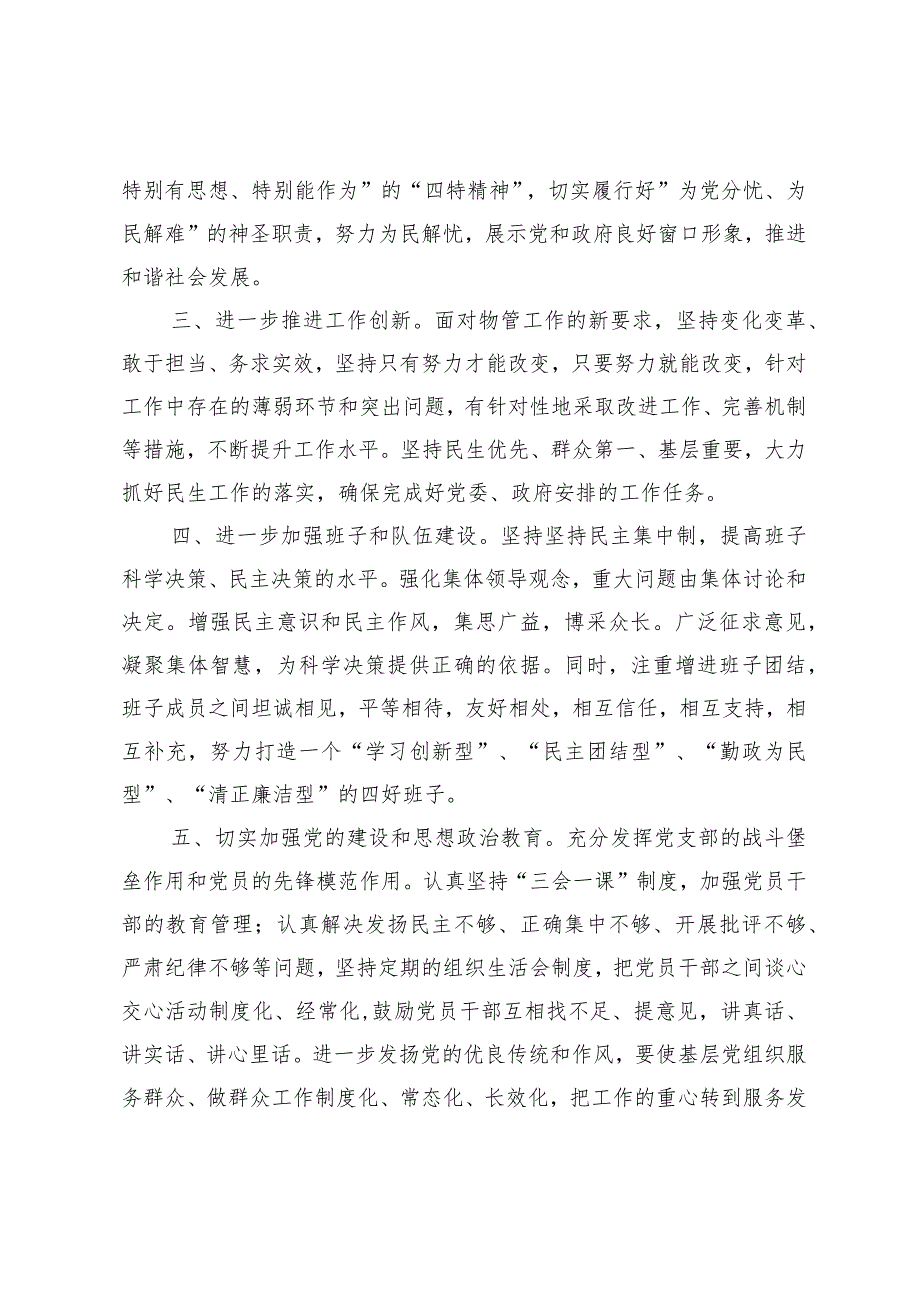 特别有思想、特别能作为”的“四特精神”，切实履行好”为党分忧、为
民解难”的神圣职责，努力为民解忧，展示党和政府良好窗口形象，推进
和谐社会发展。
三、进一步推进工作创新。面对物管工作的新要求，坚持变化变革、
敢于担当、务求实效，坚持只有努力才能改变，只要努力就能改变，针对
工作中存在的薄弱环节和突出问题，有针对性地采取改进工作、完善机制
等措施，不断提升工作水平。坚持民生优先、群众第一、基层重要，大力
抓好民生工作的落实，确保完成好党委、政府安排的工作任务。
四、进一步加强班子和队伍建设。坚持坚持民主集中制，提高班子
科学决策、民主决策的水平。强化集体领导观念，重大问题由集体讨论和
决定。增强民主意识和民主作风，集思广益，博采众长。广泛征求意见，
凝聚集体智慧，为科学决策提供正确的依据。同时，注重增进班子团结，
班子成员之间坦诚相见，平等相待，友好相处，相互信任，相互支持，相
互补充，努力打造一个“学习创新型”、“民主团结型”、“勤政为民
型”、“清正廉洁型”的四好班子。
五、切实加强党的建设和思想政治教育。充分发挥党支部的战斗堡
垒作用和党员的先锋模范作用。认真坚持“三会一课”制度，加强党员干
部的教育管理；认真解决发扬民主不够、正确集中不够、开展批评不够、
严肃纪律不够等问题，坚持定期的组织生活会制度，把党员干部之间谈心
交心活动制度化、经常化,鼓励党员干部互相找不足、提意见，讲真话、
讲实话、讲心里话。进一步发扬党的优良传统和作风，要使基层党组织服
务群众、做群众工作制度化、常态化、长效化，把工作的重心转到服务发